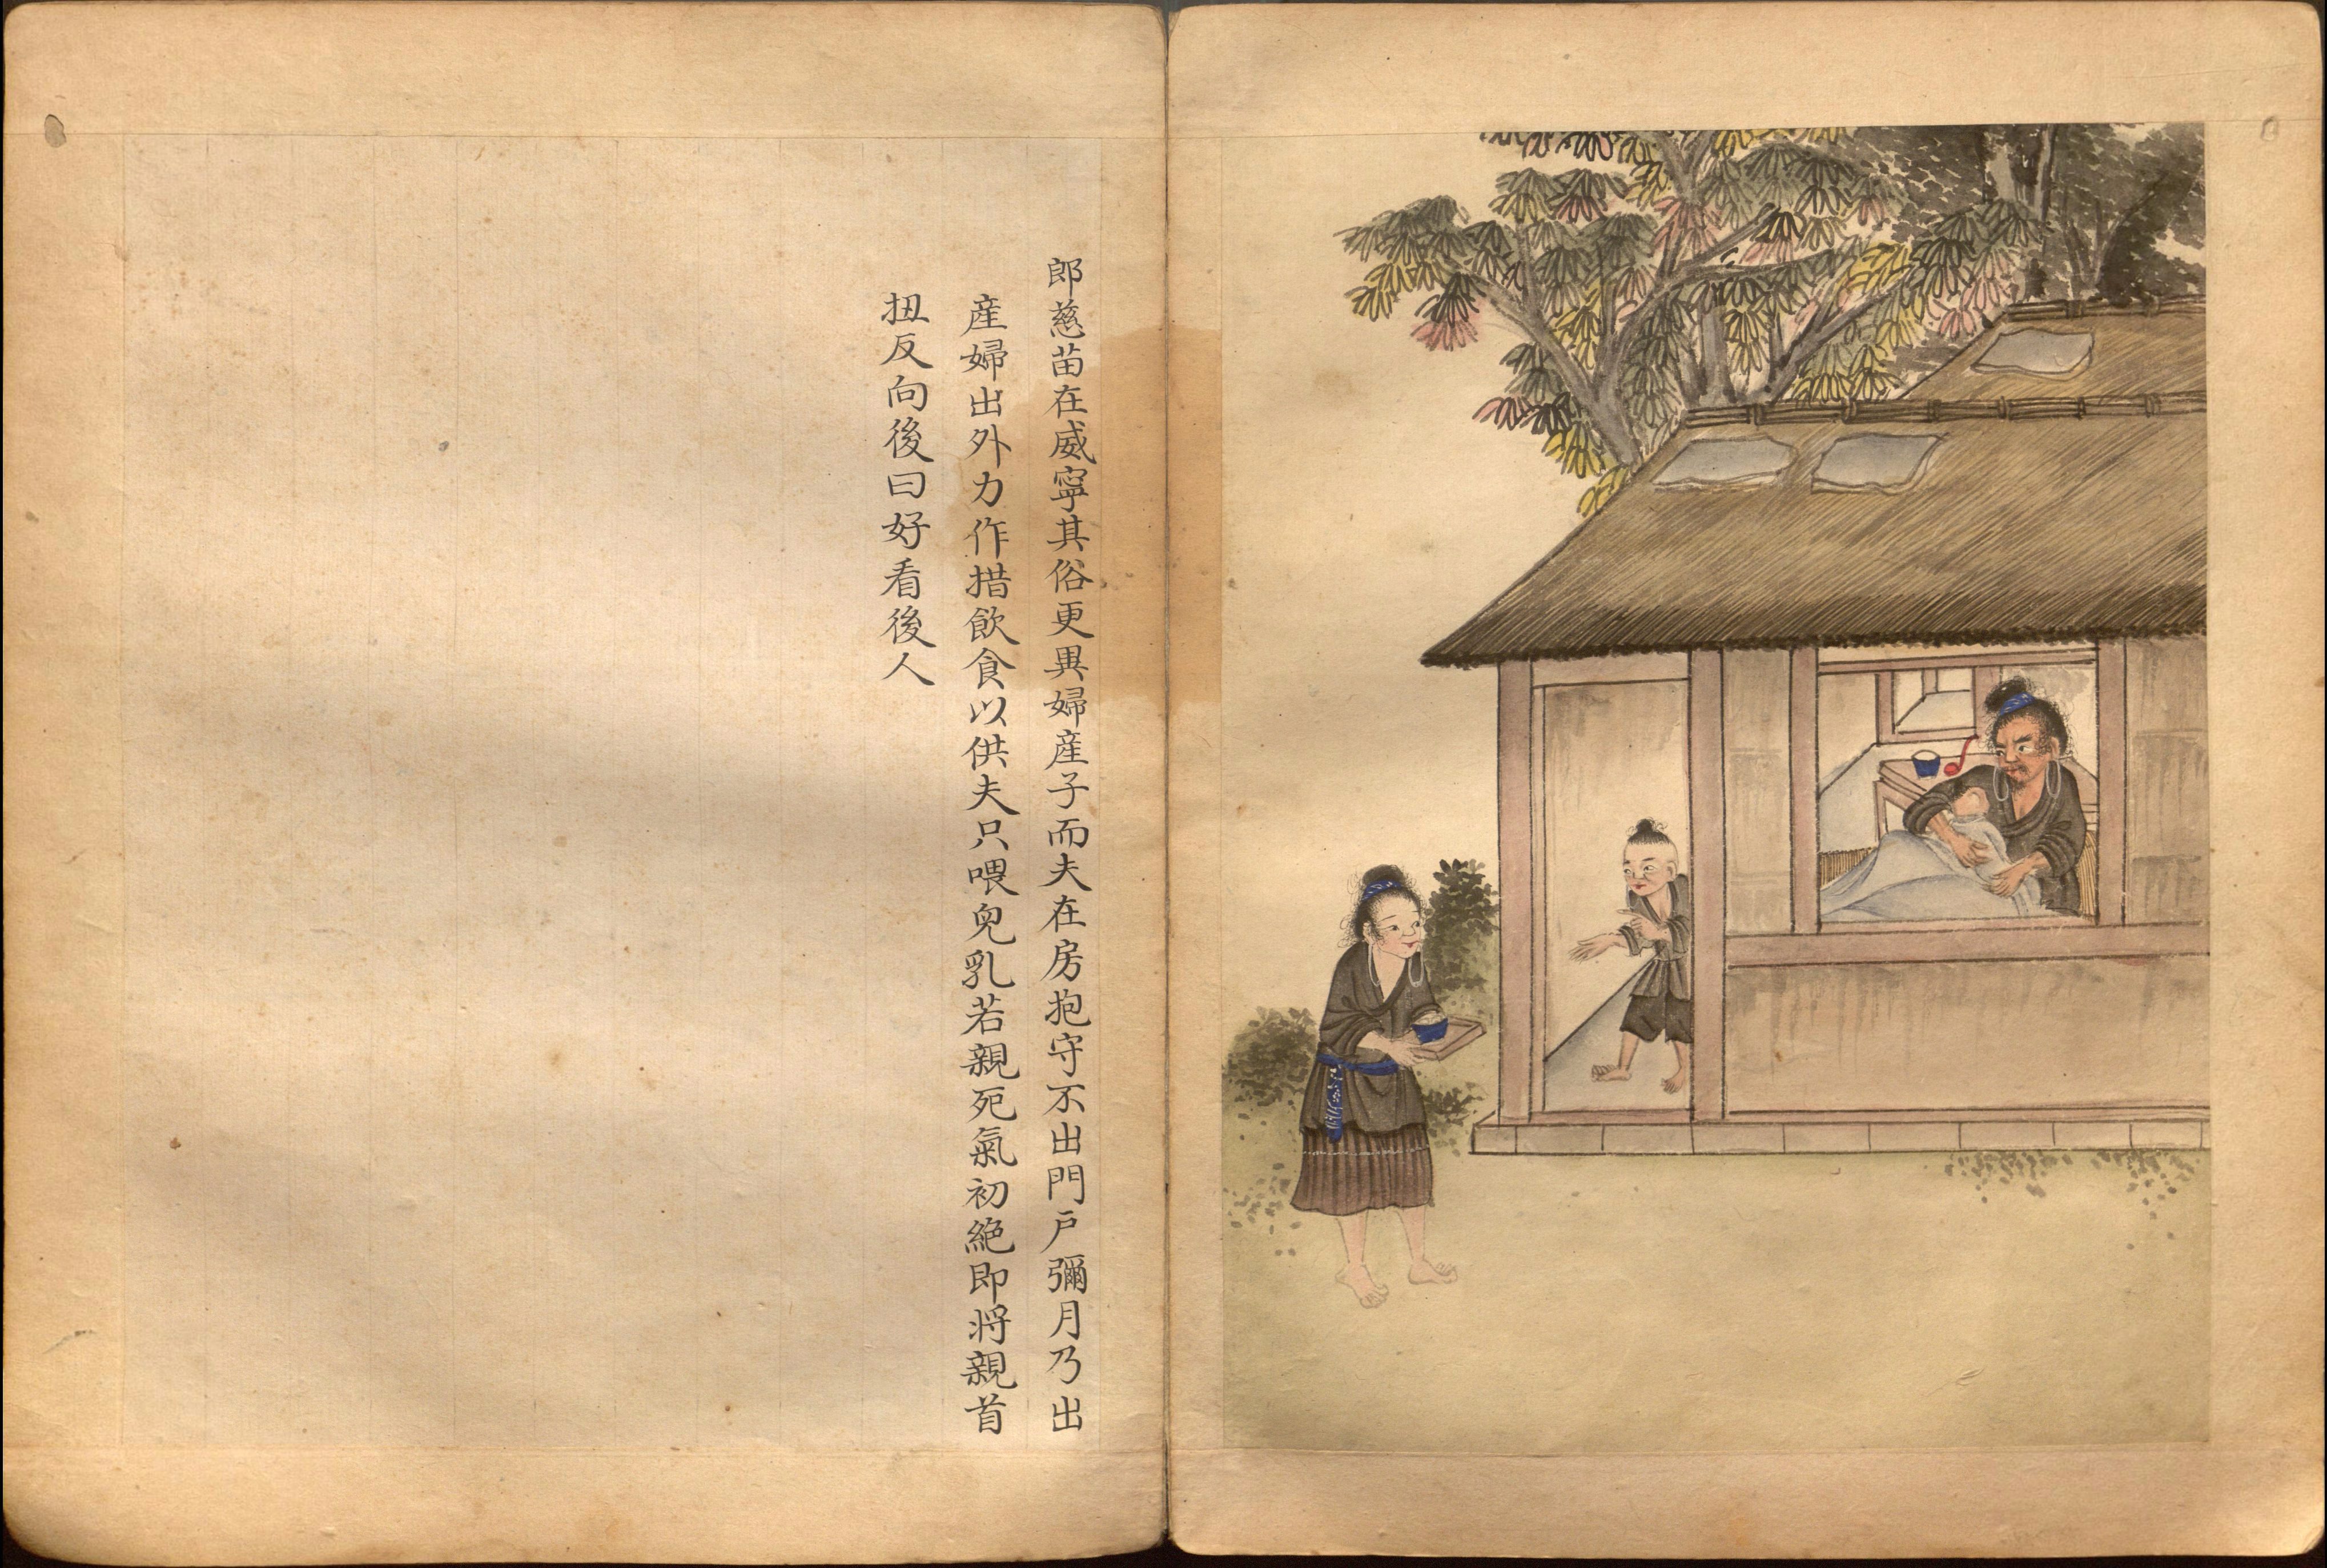 郎慈苗在威寧其俗更異婦産子而夫在房抱守不出門戸彌月乃出
産婦出外力作措飲食以供夫只喂兒乳若親死氣初絶即將親首
扭反向後曰好看後人